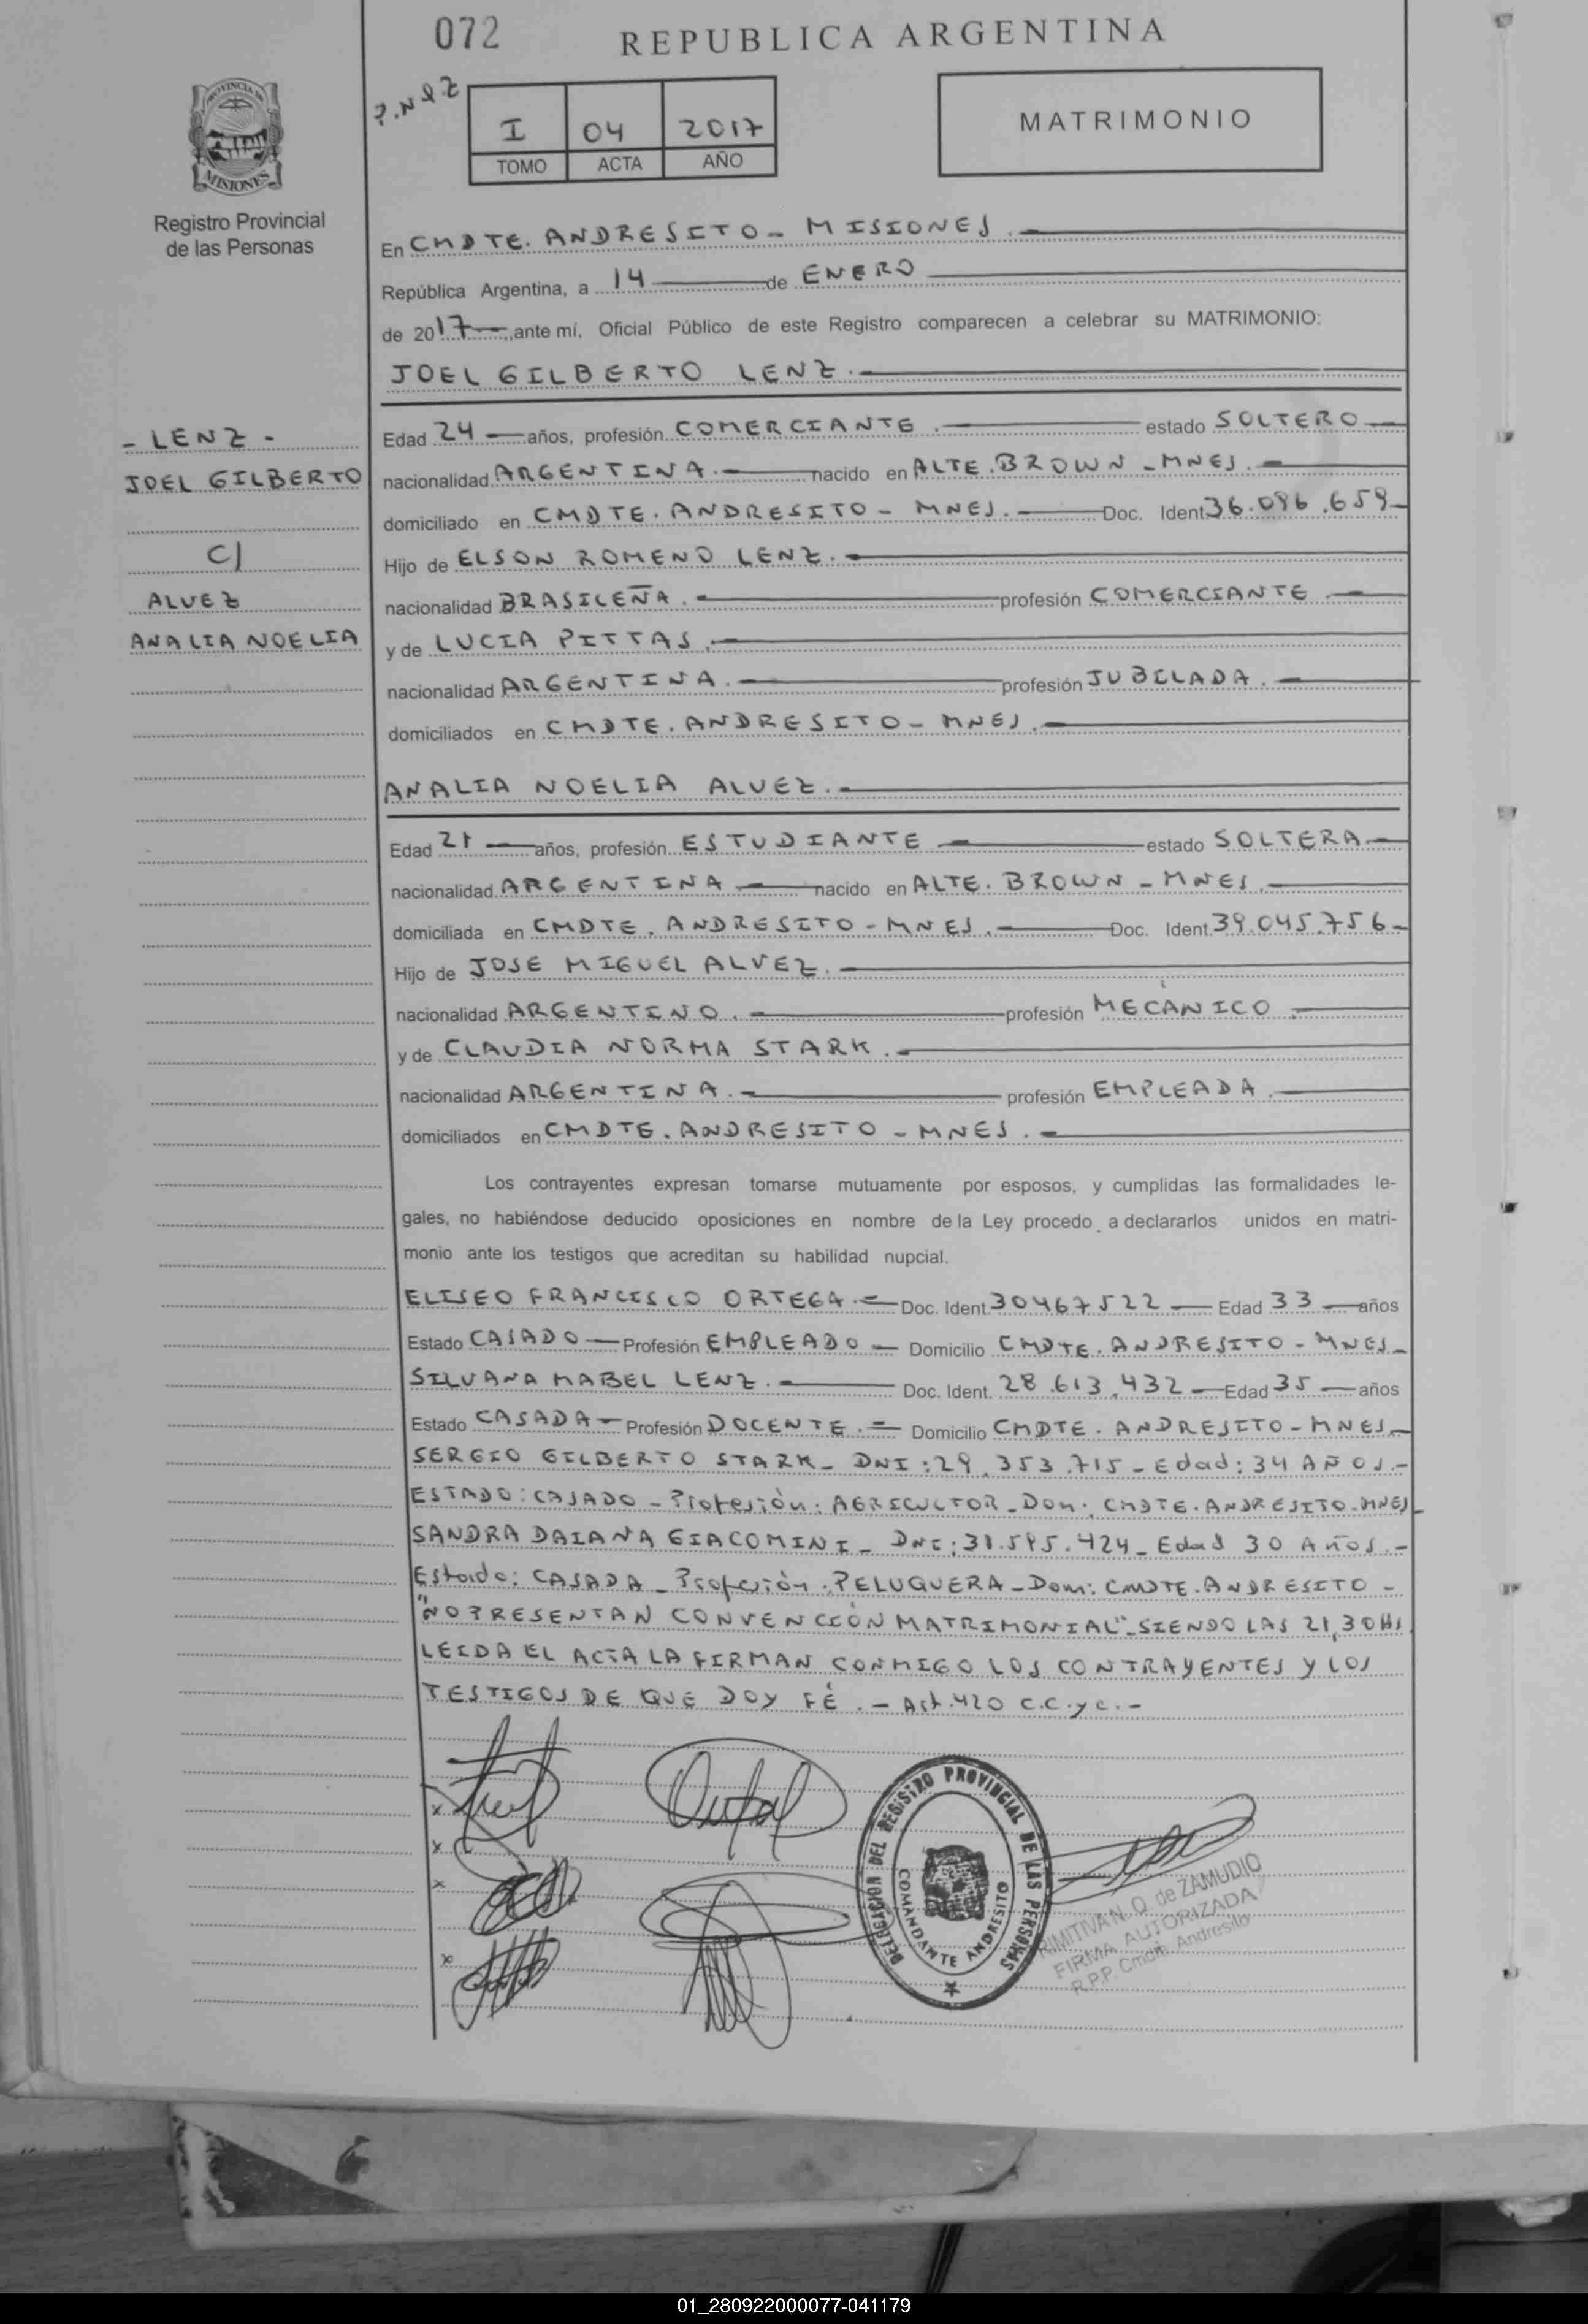 072
REPUBLICA ARGENTINA
I 04 2017
TOMO ACTA AÑO
MATRIMONIO
PROVINCIA DE
MISIONES
Registro Provincial
de las Personas
En CMDTE. ANDRESITO - MISIONES.
República Argentina, a 14 de ENERO
de 2017, ante mí, Oficial Público de este Registro comparecen a celebrar su MATRIMONIO:
JOEL GILBERTO LENZ.
- LENZ -
JOEL GILBERTO
C/
ALVEZ
ANALIA NOELIA
Edad 24 años, profesión COMERCIANTE. estado SOLTERO
nacionalidad ARGENTINA. nacido en ALTE. BROWN - MNES.
domiciliado en CMDTE. ANDRESITO - MNES. Doc. Ident 36.096.659
Hijo de ELSON ROMENO LENZ.
nacionalidad BRASILEÑA. profesión COMERCIANTE.
y de LUCIA PITTAS.
nacionalidad ARGENTINA. profesión JUBILADA.
domiciliados en CMDTE. ANDRESITO - MNES.
ANALIA NOELIA ALVEZ.
Edad 21 años, profesión ESTUDIANTE estado SOLTERA
nacionalidad ARGENTINA nacido en ALTE. BROWN - MNES.
domiciliada en CMDTE. ANDRESITO - MNES. Doc. Ident 39.045.756
Hijo de JOSE MIGUEL ALVEZ.
nacionalidad ARGENTINO. profesión MECÁNICO.
y de CLAUDIA NORMA STARK.
nacionalidad ARGENTINA. profesión EMPLEADA.
domiciliados en CMDTE. ANDRESITO - MNES.
Los contrayentes expresan tomarse mutuamente por esposos, y cumplidas las formalidades le-
gales, no habiéndose deducido oposiciones en nombre de la Ley procedo a declararlos unidos en matri-
monio ante los testigos que acreditan su habilidad nupcial.
ELISEO FRANCISCO ORTEGA. Doc. Ident 30467522 Edad 33 años
Estado CASADO Profesión EMPLEADO Domicilio CMDTE. ANDRESITO - MNES
SILVANA MABEL LENZ. Doc. Ident. 28.613.432 Edad 35 años
Estado CASADA Profesión DOCENTE. Domicilio CMDTE. ANDRESITO - MNES
SERGIO GILBERTO STARK - DNI: 29.353.715 - Edad: 34 AÑOS.-
ESTADO: CASADO - Profesión: AGRICULTOR - Dom: CMDTE. ANDRESITO - MNES
SANDRA DAIANA GIACOMINI - DNI: 31.595.424 - Edad 30 AÑOS.-
Estado: CASADA - Profesión: PELUQUERA - Dom: CMDTE. ANDRESITO -
"NO PRESENTAN CONVENCIÓN MATRIMONIAL" - SIENDO LAS 21,30 Hs
LEIDA EL ACTA LA FIRMAN CONMIGO LOS CONTRAYENTES Y LOS
TESTIGOS DE QUE DOY FÉ. - Art. 420 C.C.yC.-
DELEGACION DEL REGISTRO PROVINCIAL DE LAS PERSONAS
COMANDANTE ANDRESITO
RIMITIVA N. O. de ZAMUDIO
FIRMA AUTORIZADA
R.P.P. Cmdte. Andresito
01_280922000077-041179